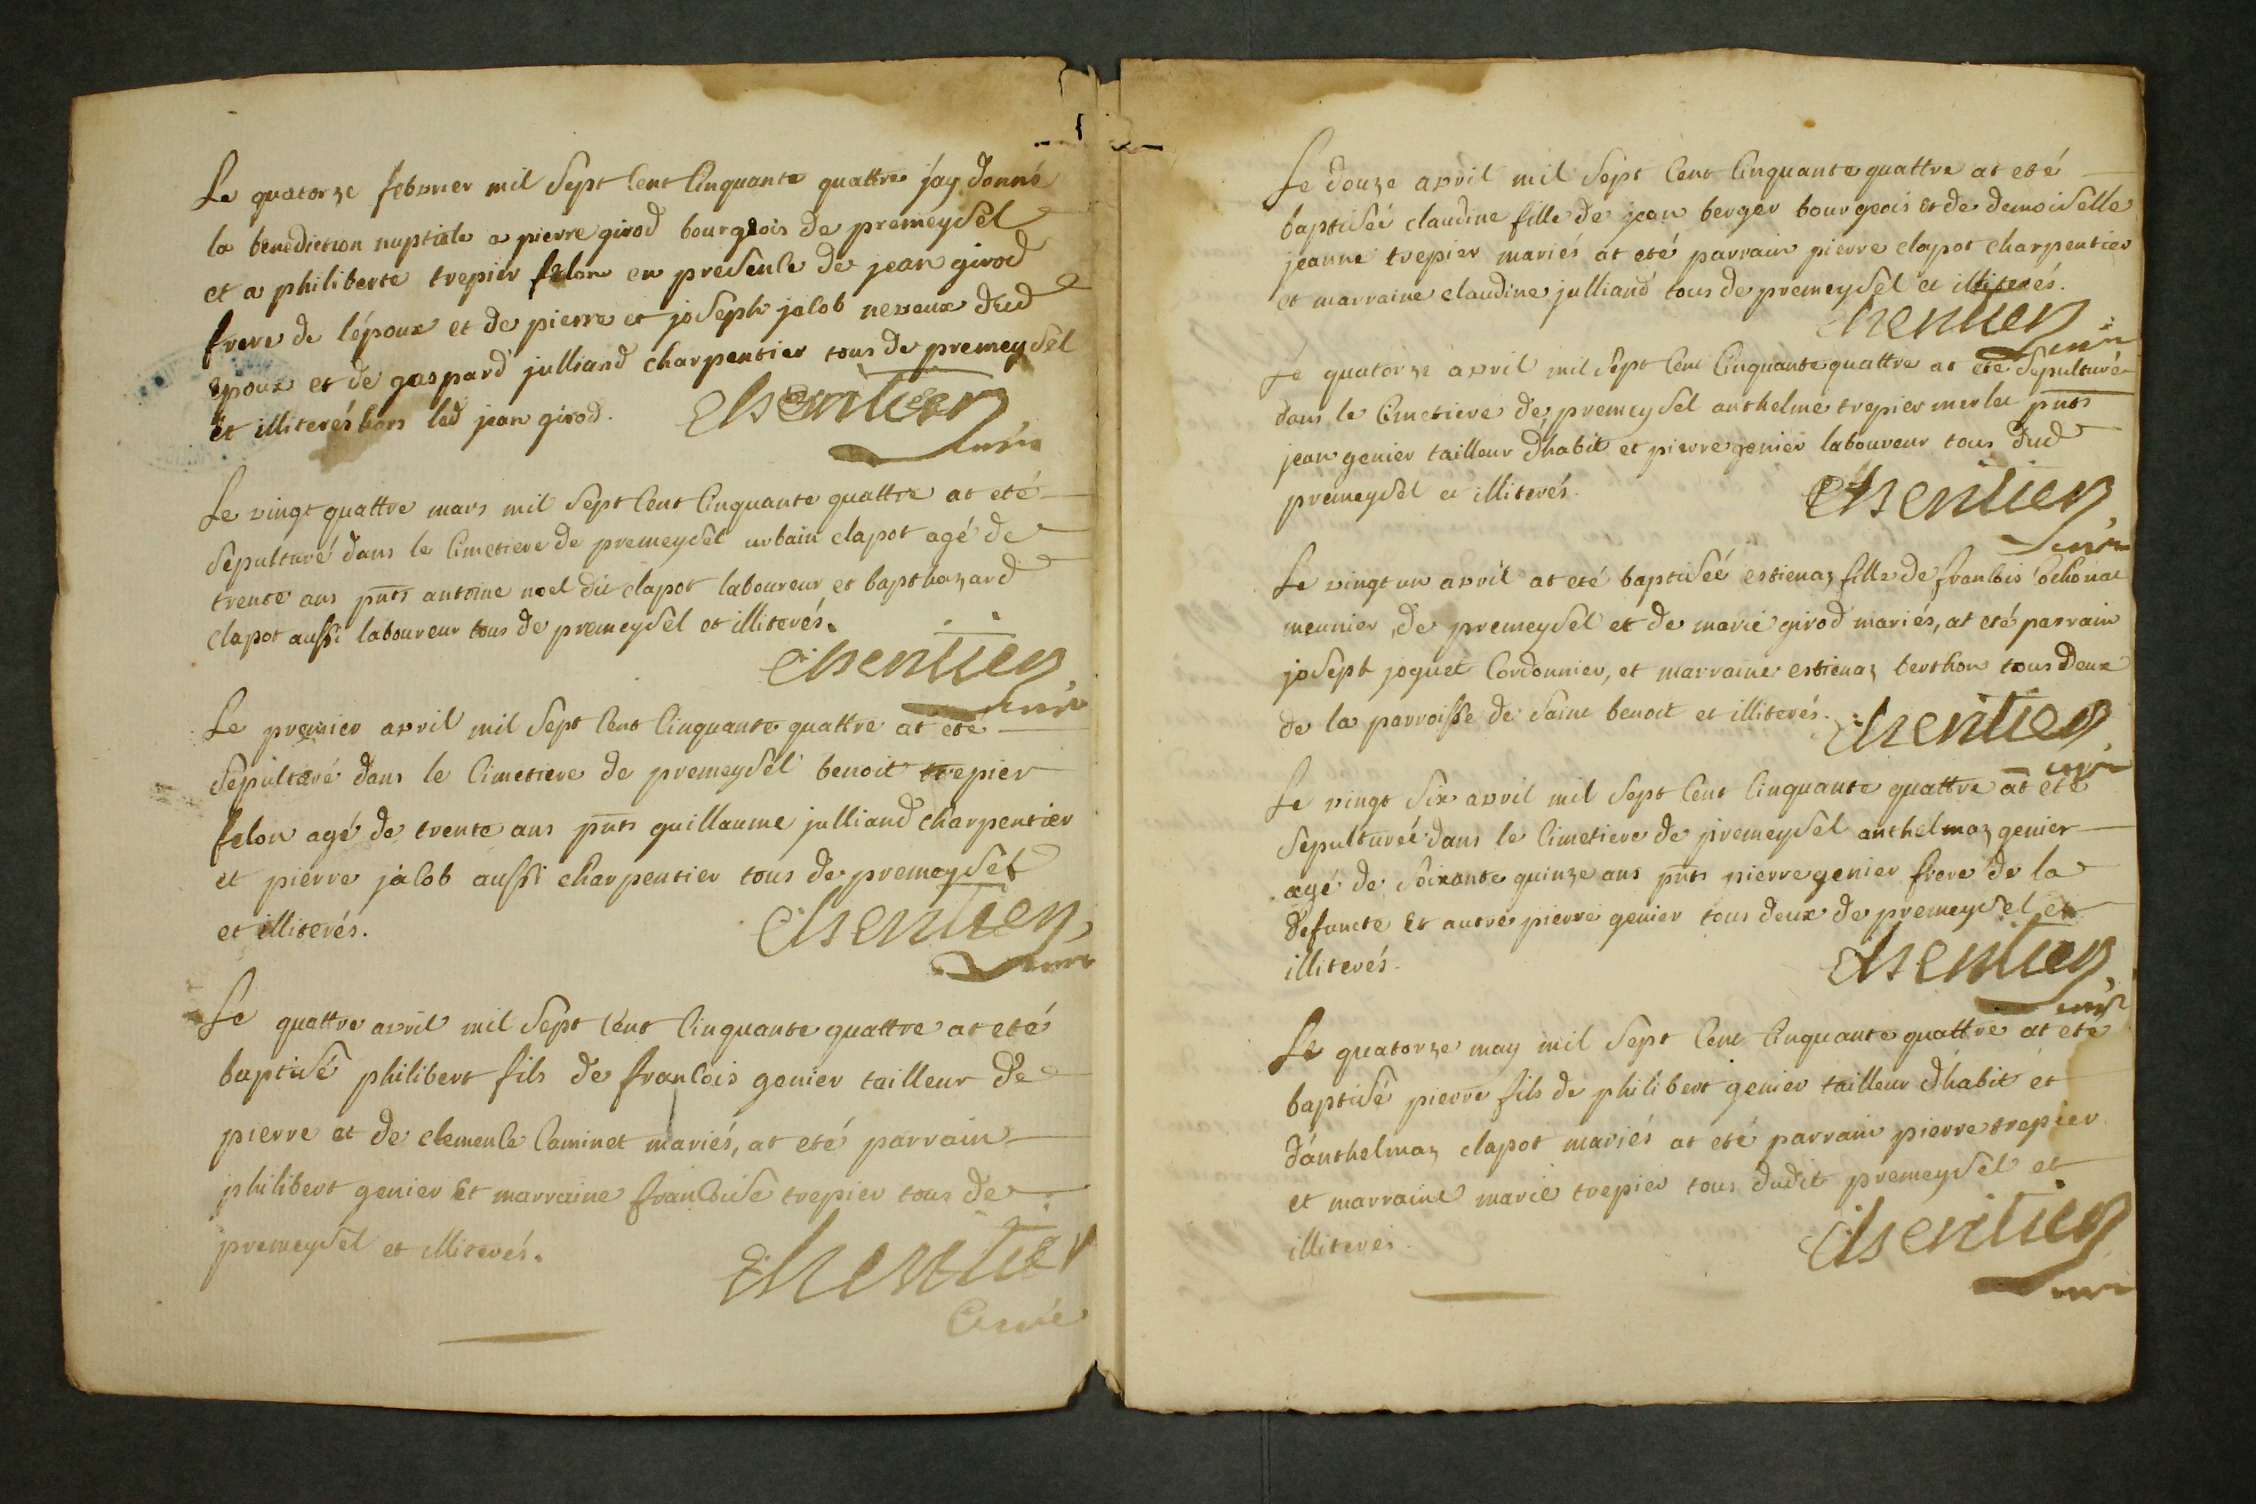 Le quatorze febvrier mil sept cent cinquante quattre j'ay donné
la benediction nuptiale a pierre girod bourgeois de premeysel
et a philiberte trepier felon en presence de jean girod
frere de l'époux et de pierre et joseph jacob neveux dud
epoux et de gaspard julliand charpentier tous de premeysel
et illiterés hors led jean girod.
curé
Le vingt quattre mars mil sept cent cinquante quattre at eté
sepulturé dans le cimetiere de premeysel urbain clapot agé de
trente ans pnts antoine noel dit clapot laboureur et balthazard
clapot aussi laboureur tous de premeysel et illiterés.
curé
Le premier avril mil sept cent cinquante quattre at eté
sepulturé dans le cimetiere de premeysel benoit trepier
felon agé de trente ans pnts guillaume julliand charpentier
et pierre jacob aussi charpentier tous de premeysel
et illiterés.
curé
Le quattre avril mil sept cent cinquante quattre at eté
baptisé philibert fils de francois genier tailleur de
pierre et de clemence caminet mariés, at eté parrain
philibert genier et marraine francoise trepier tous de
premeysel et illiterés.
curé
Le douze avril mil sept cent cinquante quattre at eté
baptiseé claudine fille de jean berger bourgeois et de demoiselle
jeanne trepier mariés at eté parrain pierre clapot charpentier
et marraine claudine julliand tous de premeysel et illiterés.
curé
Le quatorze avril mil sept cent cinquante quattre at eté sepulturé
dans le cimetiere de premeysel anthelme trepier merle pnts
jean genier tailleur d'habit et pierre genier laboureur tous dud
premeysel et illiterés.
curé
Le vingt un avril at eté baptiseé estienaz fille de francois
meunier de premeysel et de marie girod mariés, at eté parrain
joseph joguet cordonnier, et marraine estienaz berthon tous deux
de la parroisse de saint benoit et illiterés.
curé
Le vingt six avril mil sept cent cinquante quattre at eté
sepultureé dans le cimetiere de premeysel anthelmaz genier
agé de soixante quinze ans pnts pierre genier frere de la
defuncte et autre pierre genier tous deux de premeysel et
illiterés.
curé
Le quatorze may mil sept cent cinquante quattre at eté
baptisé pierre fils de philibert genier tailleur d'habit et
d'anthelmaz clapot mariés at eté parrain pierre trepier
et marraine marie trepier tous dudit premeysel et
illiterés.
curé